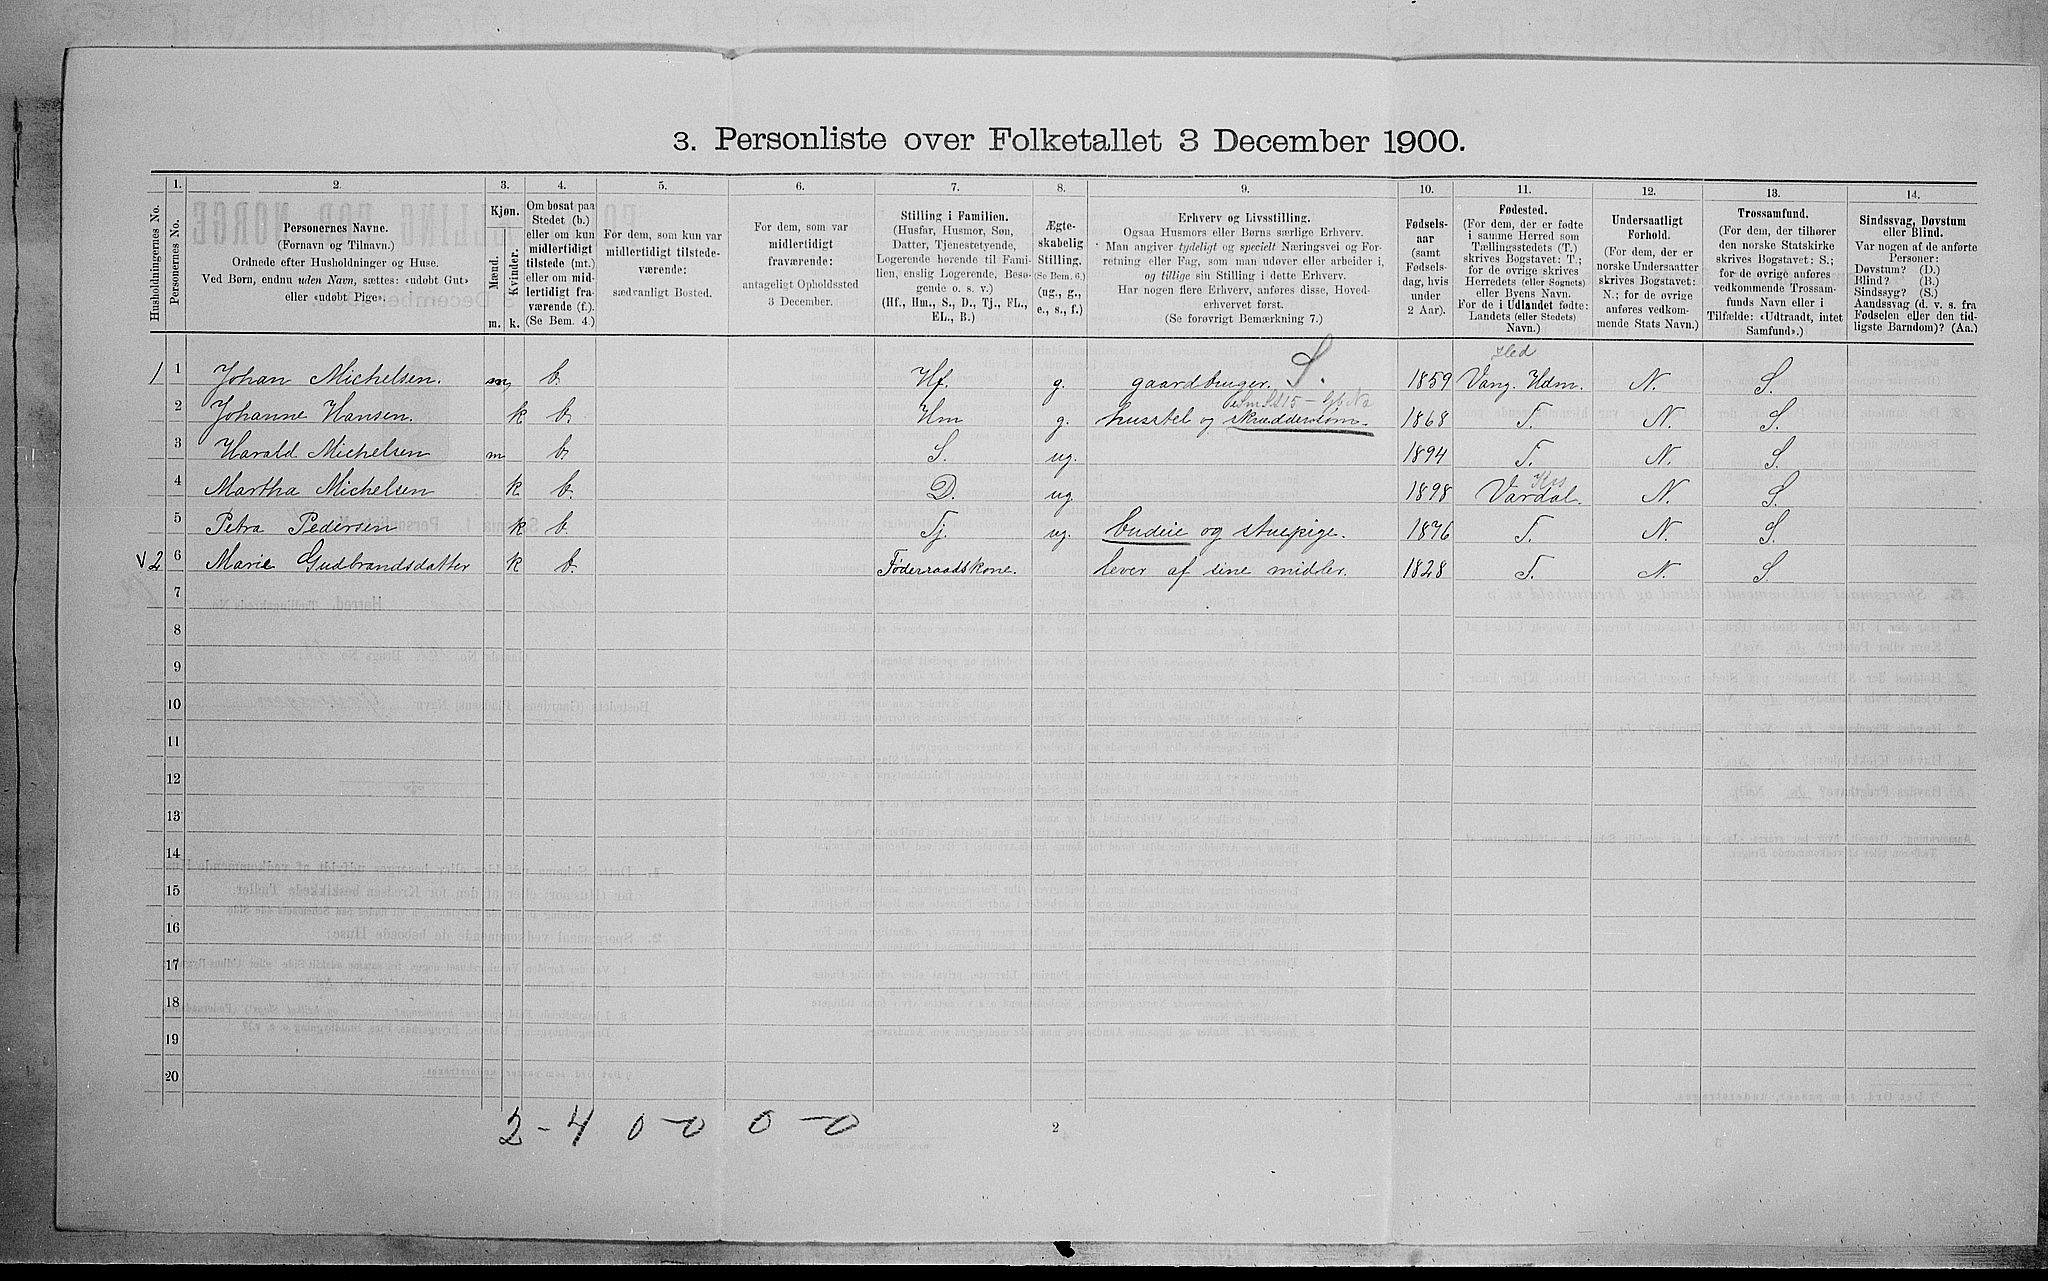 3. Personliste over Folketallet 3 December 1900.
Husholdningernes No.
1. Personernes No.
2. Personernes Navne.
(Fornavn og Tilnavn.)
Ordnede efter Husholdninger og Huse.
Ved Børn, endnu uden Navn, sættes: «udøbt Gut»
eller «udøbt Pige».
3. Kjøn.
Mænd. m.
Kvinder. k.
4. Om bosat paa
Stedet (b.)
eller om kun
midlertidigt
tilstede (mt.)
eller om mid-
lertidigt fra-
værende (f.).
(Se Bem. 4.)
5. For dem, som kun var
midlertidigt tilstede-
værende:
sædvanligt Bosted.
6. For dem, som var
midlertidigt
fraværende:
antageligt Opholdssted
3 December.
7. Stilling i Familien.
(Husfar, Husmor, Søn,
Datter, Tjenestetyende,
Logerende hørende til Fami-
lien, enslig Logerende, Besø-
gende o. s. v.)
(Hf., Hm., S., D., Tj., FL.,
EL., B.)
8. Ægte-
skabelig
Stilling.
(Se Bem. 6.)
(ug., g.,
e., s., f.)
9. Erhverv og Livsstilling.
Ogsaa Husmors eller Børns særlige Erhverv.
Man angiver tydeligt og specielt Næringsvei og For-
retning eller Fag, som man udøver eller arbeider i,
og tillige sin Stilling i dette Erhverv.
Har nogen flere Erhverv, anføres disse, Hoved-
erhvervet først.
(Se forøvrigt Bemærkning 7.)
10. Fødsels-
aar
(samt
Fødsels-
dag, hvis
under
2 Aar).
11. Fødested.
(For dem, der er fødte
i samme Herred som
Tællingsstedets (T.)
skrives Bogstavet: T.;
for de øvrige skrives
Herredets (eller Sognets)
eller Byens Navn.
For de i Udlandet fødte:
Landets (eller Stedets)
Navn.)
12. Undersaatligt
Forhold.
(For dem, der er
norske Undersaatter
skrives Bogstavet:
N.; for de øvrige
anføres vedkom-
mende Stats Navn.)
13. Trossamfund.
(For dem, der tilhører
den norske Statskirke
skrives Bogstavet: S.;
for de øvrige anføres
vedkommende Trossam-
funds Navn eller i
Tilfælde: «Udtraadt, intet
Samfund».)
14. Sindssvag, Døvstum
eller Blind.
Var nogen af de anførte
Personer:
Døvstum? (D.)
Blind? (B.)
Sindssyg? (S.)
Aandssvag (d. v. s. fra
Fødselen eller den tid-
ligste Barndom)? (Aa.)
Hed
1 1 Johan Michelsen. m. b. Hf. g. gaardbruger. S. 1859 Vang. Hdm. N. S.
2 Johanne Hansen. k b. Hm g. husstel og skræddersøm. 1868 T. N. S.
3 Harald Michelsen m b. S. ug. 1894 T. N. S.
4 Martha Michelsen k b. D. ug. 1898 Vardal. N. S.
5 Petra Pedersen k b. Tj. ug. budeie og stuepige. 1876 T. N. S.
V 2 6 Marie Gudbrandsdatter k b. Føderaadskone. lever af sine midler. 1828 T. N. S
7
8
9
10
11
12
13
14
15
16
17
18
19
20
2 - 4 0 - 0 0 - 0
2